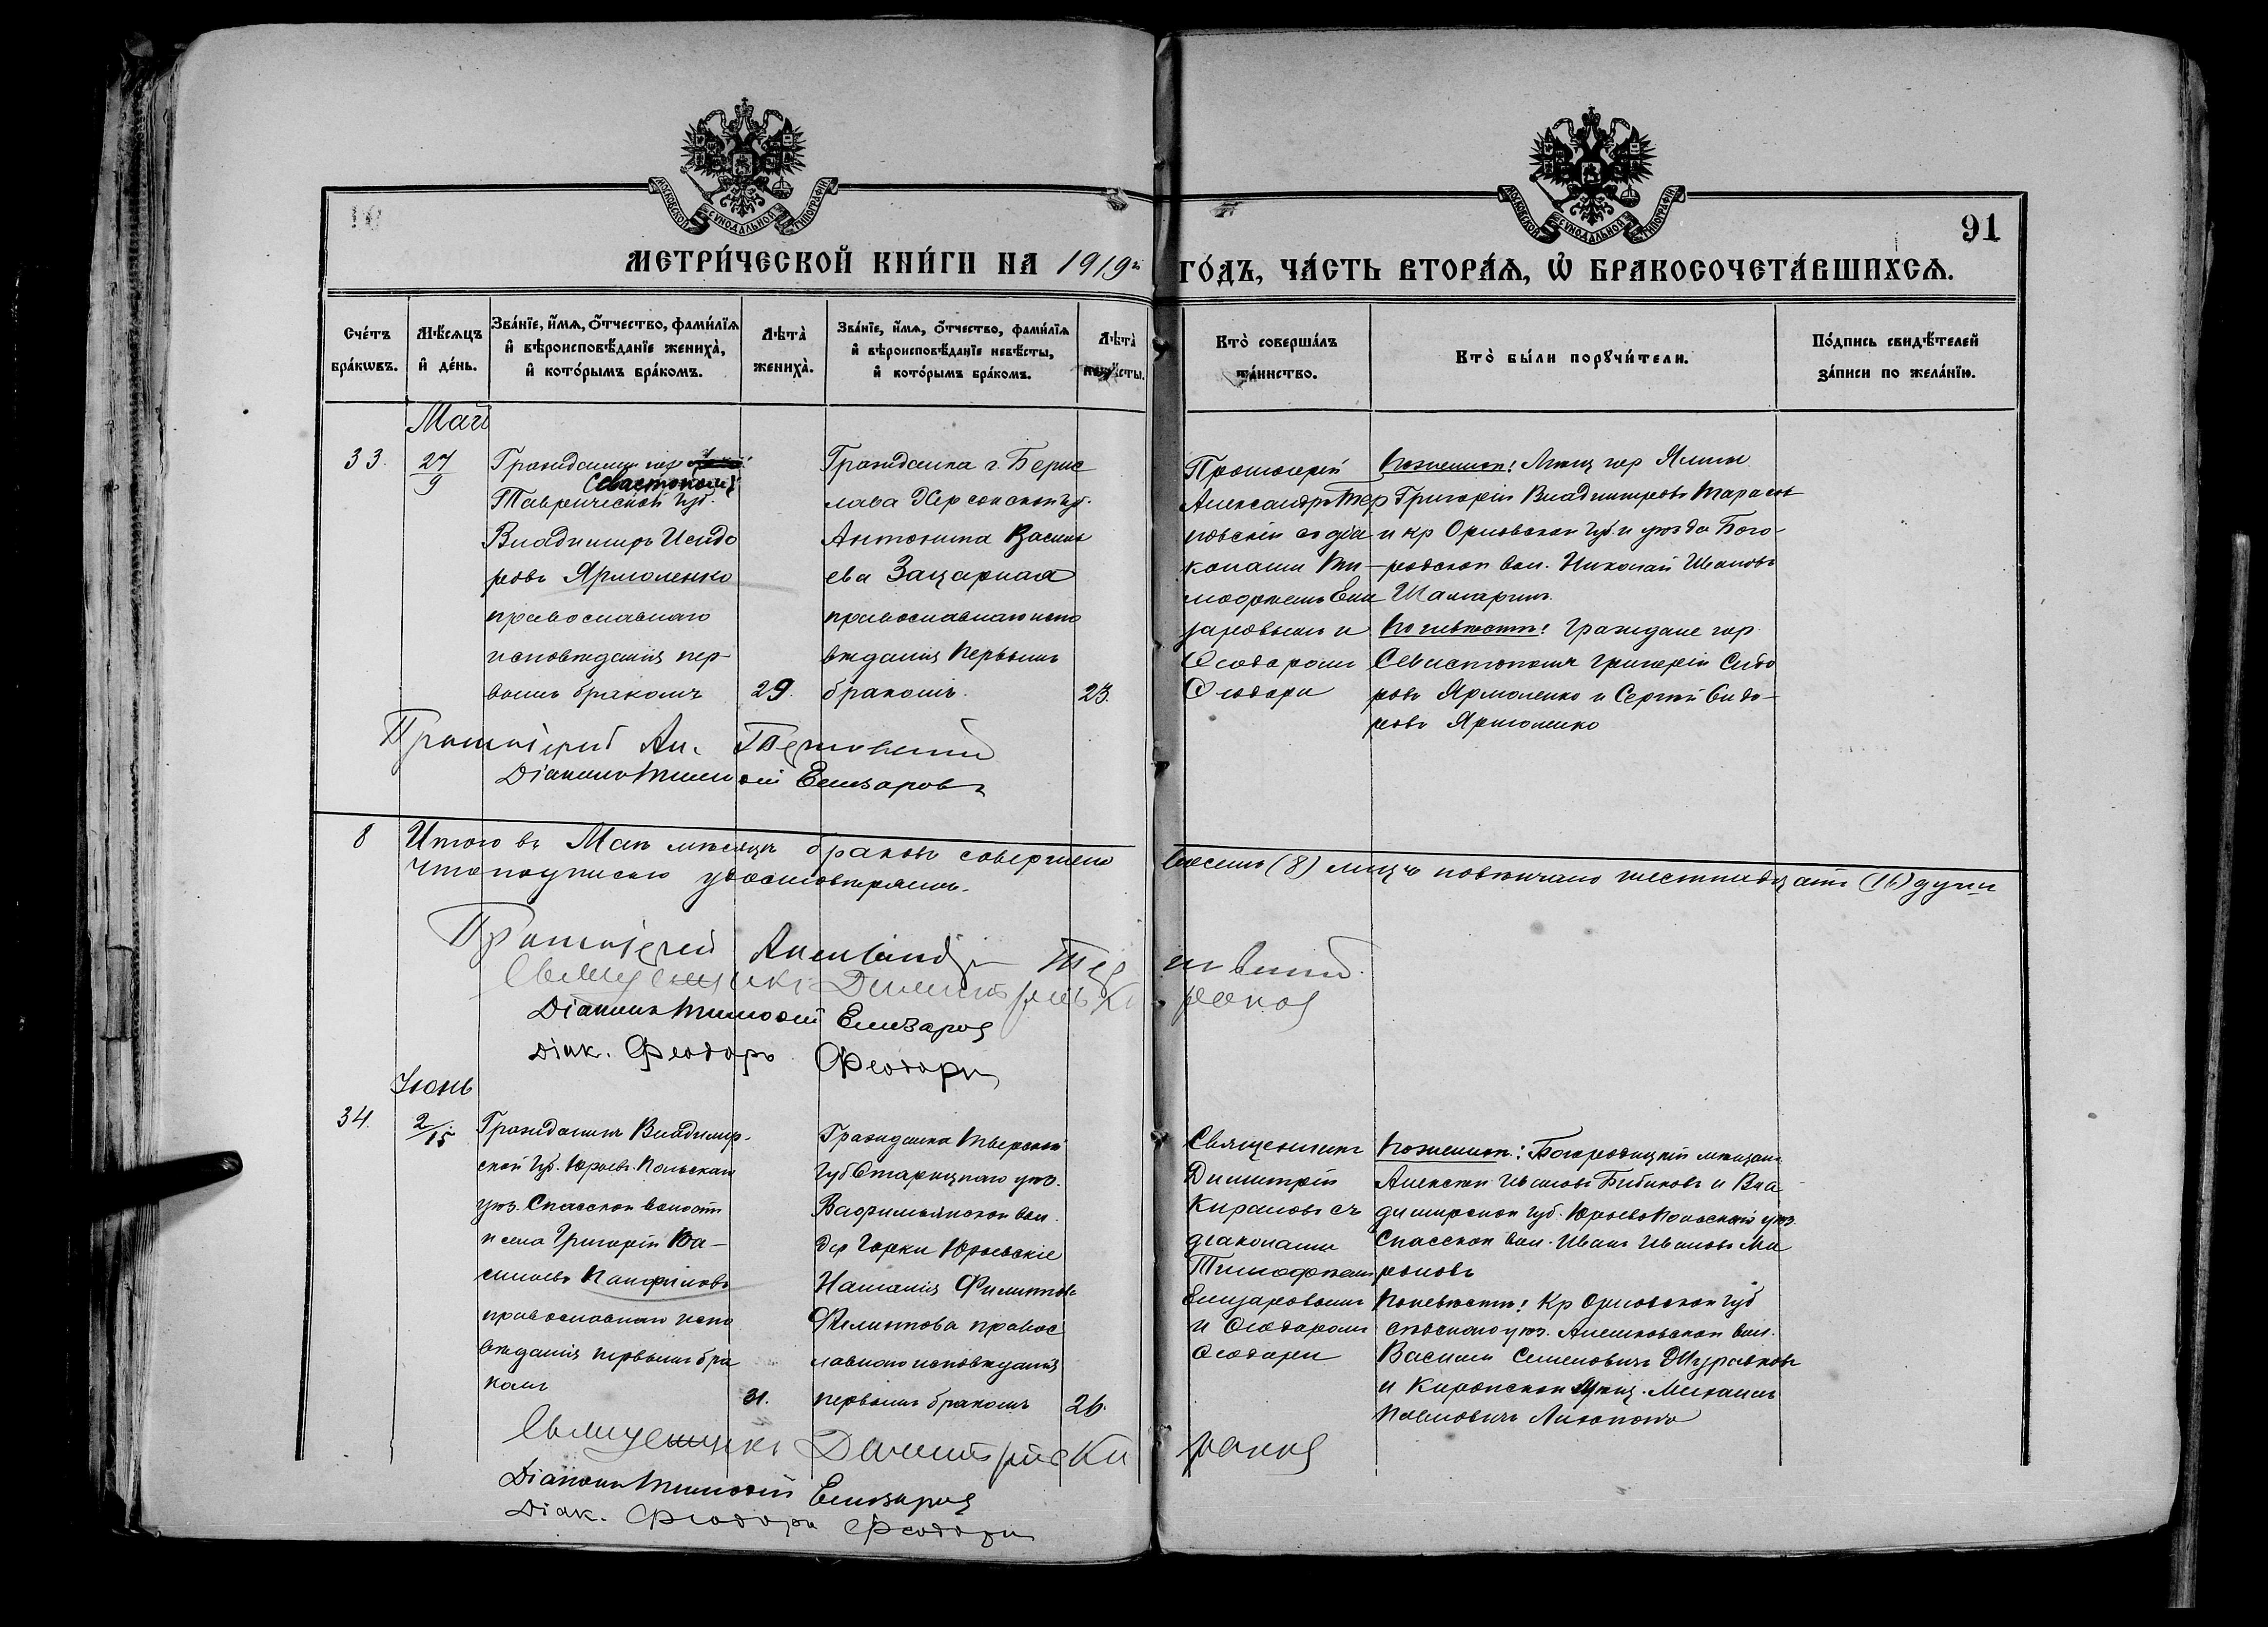 МОСКОВСКОЙ СУНОДАЛЬНОЙ ТИПОГРАФІИ
МОСКОВСКОЙ СУНОДАЛЬНОЙ ТИПОГРАФІИ
91
МЕТРИ́ЧЕСКОЙ КНИ́ГИ НА 1919 г. ГО́ДЪ, ЧА́СТЬ ВТОРА́Ѧ, Ѡ҆ БРАКОСОЧЕТА́ВШИХСѦ.
Сче́тъ бра́кѡвъ.
Мѣ́сѧцъ и҆ де́нь.
Зва́нїе, и҆́мѧ, ѻ҆́тчество, фами́лїѧ
и҆ вѣроисповѣ́данїе жениха̀,
и҆ кото́рымъ бра́комъ.
Лѣта̀ жениха̀.
Зва́нїе, и҆́мѧ, ѻ҆́тчество, фами́лїѧ
и҆ вѣроисповѣ́данїе невѣ́сты,
и҆ кото́рымъ бра́комъ.
Лѣта̀ невѣ́сты.
Кто̀ соверша́лъ та́инство.
Кто̀ бы́ли порꙋчи́тели.
По́дпись свидѣ́телей
за́писи по жела́нїю.
Май
33.
27/9
Гражданинъ гор
Севастополя
Таврической губ.
Владимиръ Исидо
ровъ Ярмоленко
православнаго
исповѣданія пер-
вымъ бракомъ
29.
Гражданка г. Берис
лава Херсонской губ.
Антонина Василь
ева Зацарная
православнаго испо
вѣданія первымъ
бракомъ.
23.
Протоіерей
Александръ Тер
новскій съ діа
конами Ти-
мофеемъ Ели
заровымъ и
Ѳеодоромъ
Ѳеодори
По женихѣ: Мѣщ гор Ялты
Григорій Владимировъ Тарасов
и кр Орловской губ. и уѣзда Бого-
родской вол. Николай Ивановъ
Шамаринъ.
По невѣстѣ: Граждане гор.
Севастополя Григорій Сидо
ровъ Ярмоленко и Сергѣй Сидо-
ровъ Ярмоленко
Протоіерей Ал. Терновскій
Діаконъ Тимоѳей Елизаровъ
8
Итого въ Маѣ мѣсяцѣ браковъ совершено восемь (8) лицъ повѣнчано шестнадцать (16) душъ
что подписью удостовѣряемъ.
Протоіерей Александръ Терновскій.
Священникъ Димитрій Кирановъ
Діаконъ Тимоѳей Елизаровъ
Діак. Феодоръ Феодори
Іюнь
34.
2/15
Гражданинъ Владимир-
ской губ. Юрьев. Польскаго
уѣз. Спасской волости
и села Григорій Ва-
сильевъ Панфиловъ
православнаго испо
вѣданія первымъ бра
комъ
31.
Гражданка Тверской
губ Старицкаго уѣз.
вол.
дер Горки Юрьевскіе
Наталія Филиппова
Филиппова правос
лавнаго исповѣданія
первымъ бракомъ
26.
Священникъ
Димитрій
Кирановъ съ
діаконами
Тимофеемъ
Елизаровымъ
и Ѳеодоромъ
Ѳеодори
По женихѣ: Богородицкій мѣщан.
Алексѣй Ивановъ Бибиковъ и Вла
димирской губ. Юрьево Польскаго уѣз.
Спасской вол. Иванъ Ивановъ Ми
роновъ
По невѣстѣ: Кр Орловской губ
Сѣвскаго уѣз. Алешковской вол.
Василій Семеновичъ Журавковъ
и мѣщ. Михаилъ
Священникъ Димитрій Кирановъ
Діаконъ Тимоѳей Елизаровъ
Діак. Феодоръ Феодори